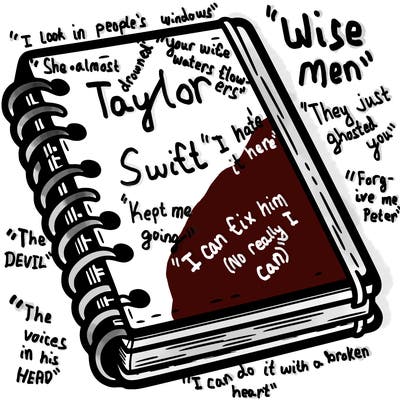 "I look in people's windows"
"She almost
drowned"
"Your wife
waters flow-
ers"
"Wise
men"
Taylor
Swift
"I hate
it here"
"They just
ghosted
you"
"Forg-
ive me
Peter"
"Kept me
going"
"I can fix him
(No really I
can)"
"The
DEVIL"
"The
voices
in his
HEAD"
"I can do it with a broken
heart"